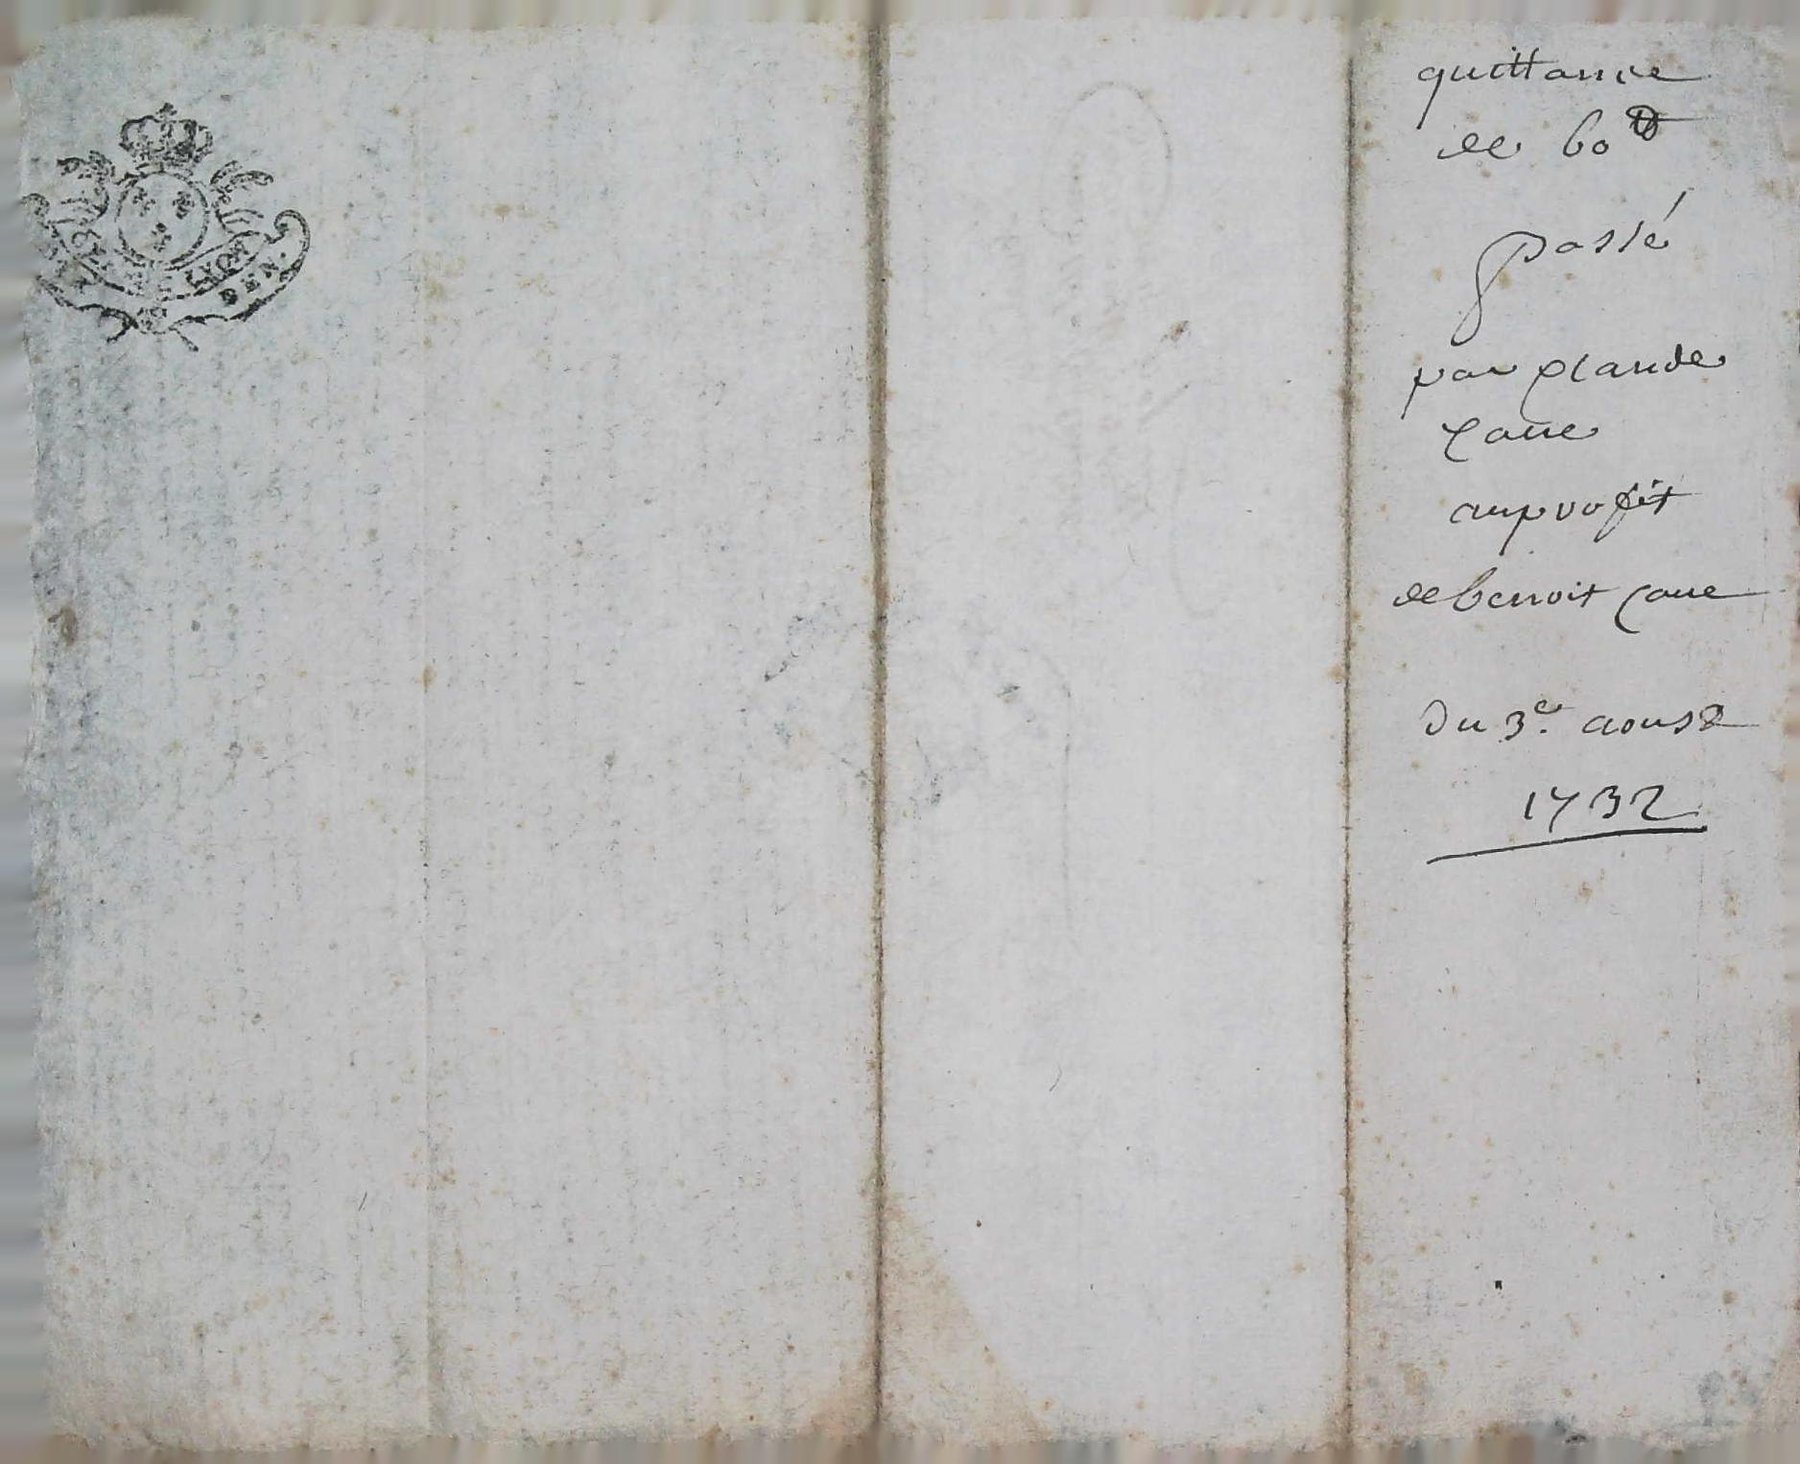 GEN. DE LYON
DEN.
quittance
de 60 ₶
passé
par Claude
Caue
au profit
de benoit Caue
Du 3e. aoust
1732